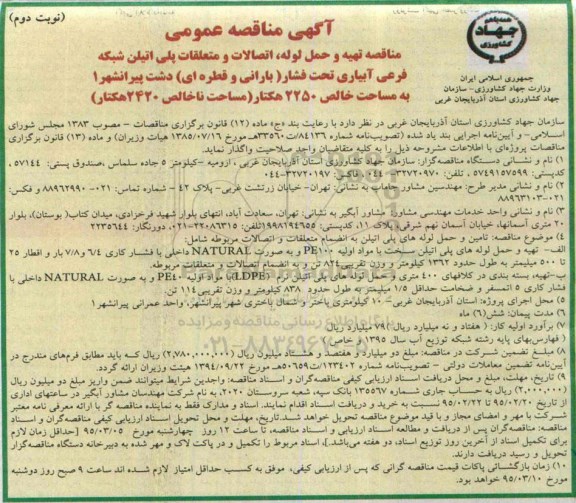 (نوبت دوم)
همه با هم
جهاد
کشاورزی
جمهوری اسلامی ایران
وزارت جهاد کشاورزی- سازمان
جهاد کشاورزی استان آذربایجان غربی
آگهی مناقصه عمومی
مناقصه تهیه و حمل لوله، اتصالات و متعلقات پلی اتیلن شبکه
فرعی آبیاری تحت فشار( بارانی و قطره ای) دشت پیرانشهر۱
به مساحت خالص ۲۲۵۰ هکتار(مساحت ناخالص ۲۴۲۰هکتار)
سازمان جهاد کشاورزی استان آذربایجان غربی در نظر دارد با رعایت بند «ج» ماده (۱۲) قانون برگزاری مناقصات – مصوب ۱۳۸۳ مجلس شورای
اسلامی- و آیین‌نامه اجرایی بند یاد شده (تصویب‌نامه شماره ۸۴۱۳۶/ت۳۳۵۶۰هـ مورخ ۱۳۸۵/۰۷/۱۶ هیات وزیران) و ماده (۱۳) قانون برگزاری
مناقصات پروژه‌ای با اطلاعات مشروحه ذیل را به کلیه متقاضیان واجد صلاحیت واگذار نماید.
۱) نام و نشانی دستگاه مناقصه‌گزار: سازمان جهاد کشاورزی استان آذربایجان غربی ، ارومیه -کیلومتر ۵ جاده سلماس ،صندوق پستی: ۵۷۱۴۴ ،
کدپستی: ۵۷۴۹۱۵۷۵۹۹ ، تلفن: ۳۲۷۲۰۹۷۰-۰۴۴ نمابر: ۳۲۷۲۰۱۹۷-۰۴۴
۲) نام و نشانی مدیر طرح: مهندسین مشاور جاماب به نشانی: تهران- خیابان زرتشت غربی- پلاک ۴۲ – شماره تماس: ۰۲۱- ۸۸۹۶۲۹۹۰ و فکس:
۸۸۹۶۳۱۰۳-۰۲۱
۳) نام و نشانی واحد خدمات مهندسی مشاور: مشاور آبگیر به نشانی: تهران، سعادت آباد، انتهای بلوار شهید فرحزادی، میدان کتاب( بوستان)، بلوار
۲۰ متری آسمانها، خیابان آسمان نهم شرقی، پلاک ۱۱، کدپستی: ۱۹۹۸۱۹۴۶۵۵تلفن: ۲۲۰۸۶۳۱۵-۰۲۱، دورنگار: ۲۲۳۵۶۴۴
۴) موضوع مناقصه: تامین و حمل لوله های پلی اتیلن به انضمام متعلقات و اتصالات مربوطه شامل:
الف– تهیه و حمل لوله های پلی اتیلن سخت با مواد اولیه PE۱۰۰ و به صورت NATURAL داخلی با فشار کاری ۶/۴ و ۷/۸ بار و اقطار ۲۵
تا ۵۰۰ میلیمتر به طول حدود ۱۳۶۲ کیلومتر و وزن تقریبی ۸۲۴ تن و به انضمام اتصالات و متعلقات مربوطه.
ب-تهیه، بسته بندی در کلافهای ۴۰۰ متری و حمل لوله های پلی اتیلن نرم (LDPE) مواد اولیه PE۴۰ و به صورت NATURAL داخلی با
فشار کاری ۵ اتمسفر و ضخامت حداقل ۱/۵ میلیمتر به طول حدود ۸۳۸ کیلومتر و وزن تقریبی ۱۱۴ تن.
۵) محل اجرای پروژه: استان آذربایجان غربی- ۱۰ کیلومتری باختر و شمال باختری شهر پیرانشهر، واحد عمرانی پیرانشهر۱
۶) مدت پیمان: شش(۶) ماه
۷) برآورد اولیه کار: ( هفتاد و نه میلیارد ریال)۷۹ میلیارد ریال
( فهارس‌بهای پایه رشته شبکه توزیع آب سال ۱۳۹۵و خاص)
۸) مبلـغ تضمین شرکت در مناقصه: مبلغ دو میلیارد و هفتصد و هشتاد میلیون ریال (۲,۷۸۰,۰۰۰,۰۰۰) ریال کـه باید مطابق فرم‌های مندرج در
آیین‌نامه تضمین معاملات دولتی – تصویب‌نامه شماره ۱۲۳۴۰۲/ت۵۰۶۵۹هـ مورخ ۱۳۹۴/۰۹/۲۲ هیئت وزیران ارائه گردد.
۹) تاریخ، مهلت، مبلغ و محل دریافت اسناد ارزیابی کیفی مناقصه‌گران و اسناد مناقصه: واجدین شرایط میتوانند ضمن واریز مبلغ دو میلیون ریال
(۲,۰۰۰,۰۰۰) ریال به حساب جاری شماره ۱۳۵۶۷ بانک سپه شعبه سروستان ۲۰۲۰، به نام شرکت مهندسان مشاور آبگیر در ساعتهای اداری
از تاریخ ۹۵/۰۲/۲۰ تا تاریخ ۹۵/۰۲/۲۲ نسبت به خرید و دریافت اسناد اقدام نمایند. اسناد و مدارک فقط به نماینده مناقصه گر با ارائه معرفی نامه معتبر
شرکت با مهر و امضای مجاز و با قید موضوع مناقصه تحویل خواهد شد.تاریخ، مهلت و محل تحویل اسناد ارزیابی کیفی مناقصه‌گران و اسناد
مناقصه: مناقصه‌گران پس از دریافت و مطالعه اسناد ارزیابی و اسناد مناقصه، تا ساعت ۱۲ روز چهارشنبه مورخ ۹۵/۰۳/۰۵ [حداقل زمان لازم
برای تکمیل اسناد از آخرین روز توزیع اسناد، دو هفته می‌باشد.]، اسناد مربوط را تکمیل و در پاکت لاک و مهر شده به دبیرخانه دستگاه مناقصه‌گزار
تحویل و رسید دریافت دارند.
۱۰) زمان بازگشائی پاکات قیمت مناقصه گرانی که پس از ارزیابی کیفی، موفق به کسب حداقل امتیاز لازم شده اند ساعت ۹ صبح روز دوشنبه
مورخ ۹۵/۰۳/۱۰ خواهد بود.
پایگاه اطلاع رسانی مناقصه و مزایده
۰۲۱-۸۸۳۴۹۶۷۰